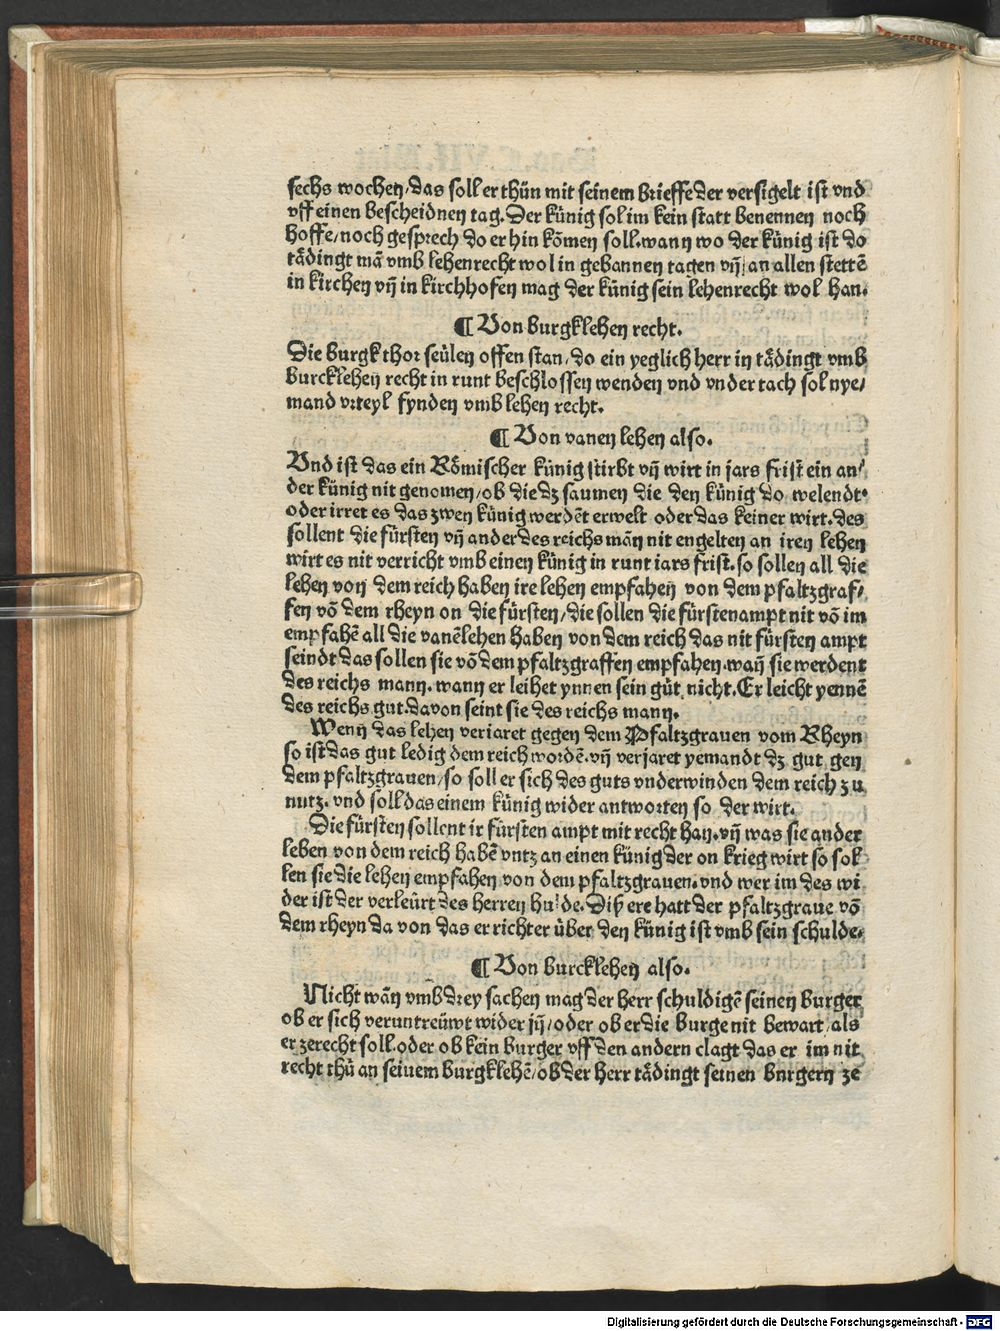 sechs wochen/das soll er thůn mit seinem brieffe der versigelt ist vnd
vff einen bescheidnen tag. Der künig sol im kein statt benennen noch
hoffe/noch gesprech do er hin kōmen soll. wann wo der künig ist do
tådingt mā vmb lehenrecht wol in gebannen tagen vn̄ an allen stettē
in kirchen vn̄ in kirchhofen mag der künig sein lehenrecht wol han.
¶ Von burgklehen recht.
Die burgk thor seülen offen stan/do ein yeglich herr in tådingt vmb
burcklehen recht in runt beschlossen wenden vnd vnder tach sol nye/
mand vrteyl fynden vmb lehen recht.
¶ Von vanen lehen also.
Vnd ist das ein Römischer künig stirbt vn̄ wirt in jars frist ein an/
der künig nit genomen/ob die dz saumen die den künig do welendt.
oder irret es das zwen künig werdēt erwelt oder das keiner wirt. des
sollent die fürsten vn̄ ander des reichs mān nit engelten an iren lehen
wirt es nit verricht vmb einen künig in runt iars frist. so sollen all die
lehen von dem reich haben ire lehen empfahen von dem pfaltzgraf/
fen vō dem rheyn on die fürsten/die sollen die fürstenampt nit vō im
empfahē all die vanēlehen haben von dem reich das nit fürsten ampt
seindt das sollen sie vō dem pfaltzgraffen empfahen. wan̄ sie werdent
des reichs mann. wann er leihet ynnen sein gůt nicht. Er leicht yennē
des reichs gut. davon seint sie des reichs mann.
Wenn das lehen veriaret gegen dem Pfaltzgrauen vom Rheyn
so ist das gut ledig dem reich wordē. vn̄ verjaret yemandt dz gut gen
dem pfaltzgrauen/so soll er sich des guts vnderwinden dem reich zu
nutz. vnd soll das einem künig wider antworten so der wirt.
Die fürsten sollent ir fürsten ampt mit recht han. vn̄ was sie ander
leben von dem reich habē vntz an einen künig der on krieg wirt so sol
len sie die lehen empfahen von dem pfaltzgrauen. vnd wer im des wi
der ist der verleürt des herren hulde. Diß ere hatt der pfaltzgraue vō
dem rheyn da von das er richter über den künig ist vmb sein schulde.
¶ Von burcklehen also.
Nicht wān vmb drey sachen mag der herr schuldigē seinen burger
ob er sich veruntreüwt wider jn̄/oder ob er die burge nit bewart/als
er zerecht soll. oder ob kein burger vff den andern clagt das er im nit
recht thů an seiuem burgklehē/ob der herr tådingt seinen bnrgern ze
Digitalisierung gefördert durch die Deutsche Forschungsgemeinschaft - DFG